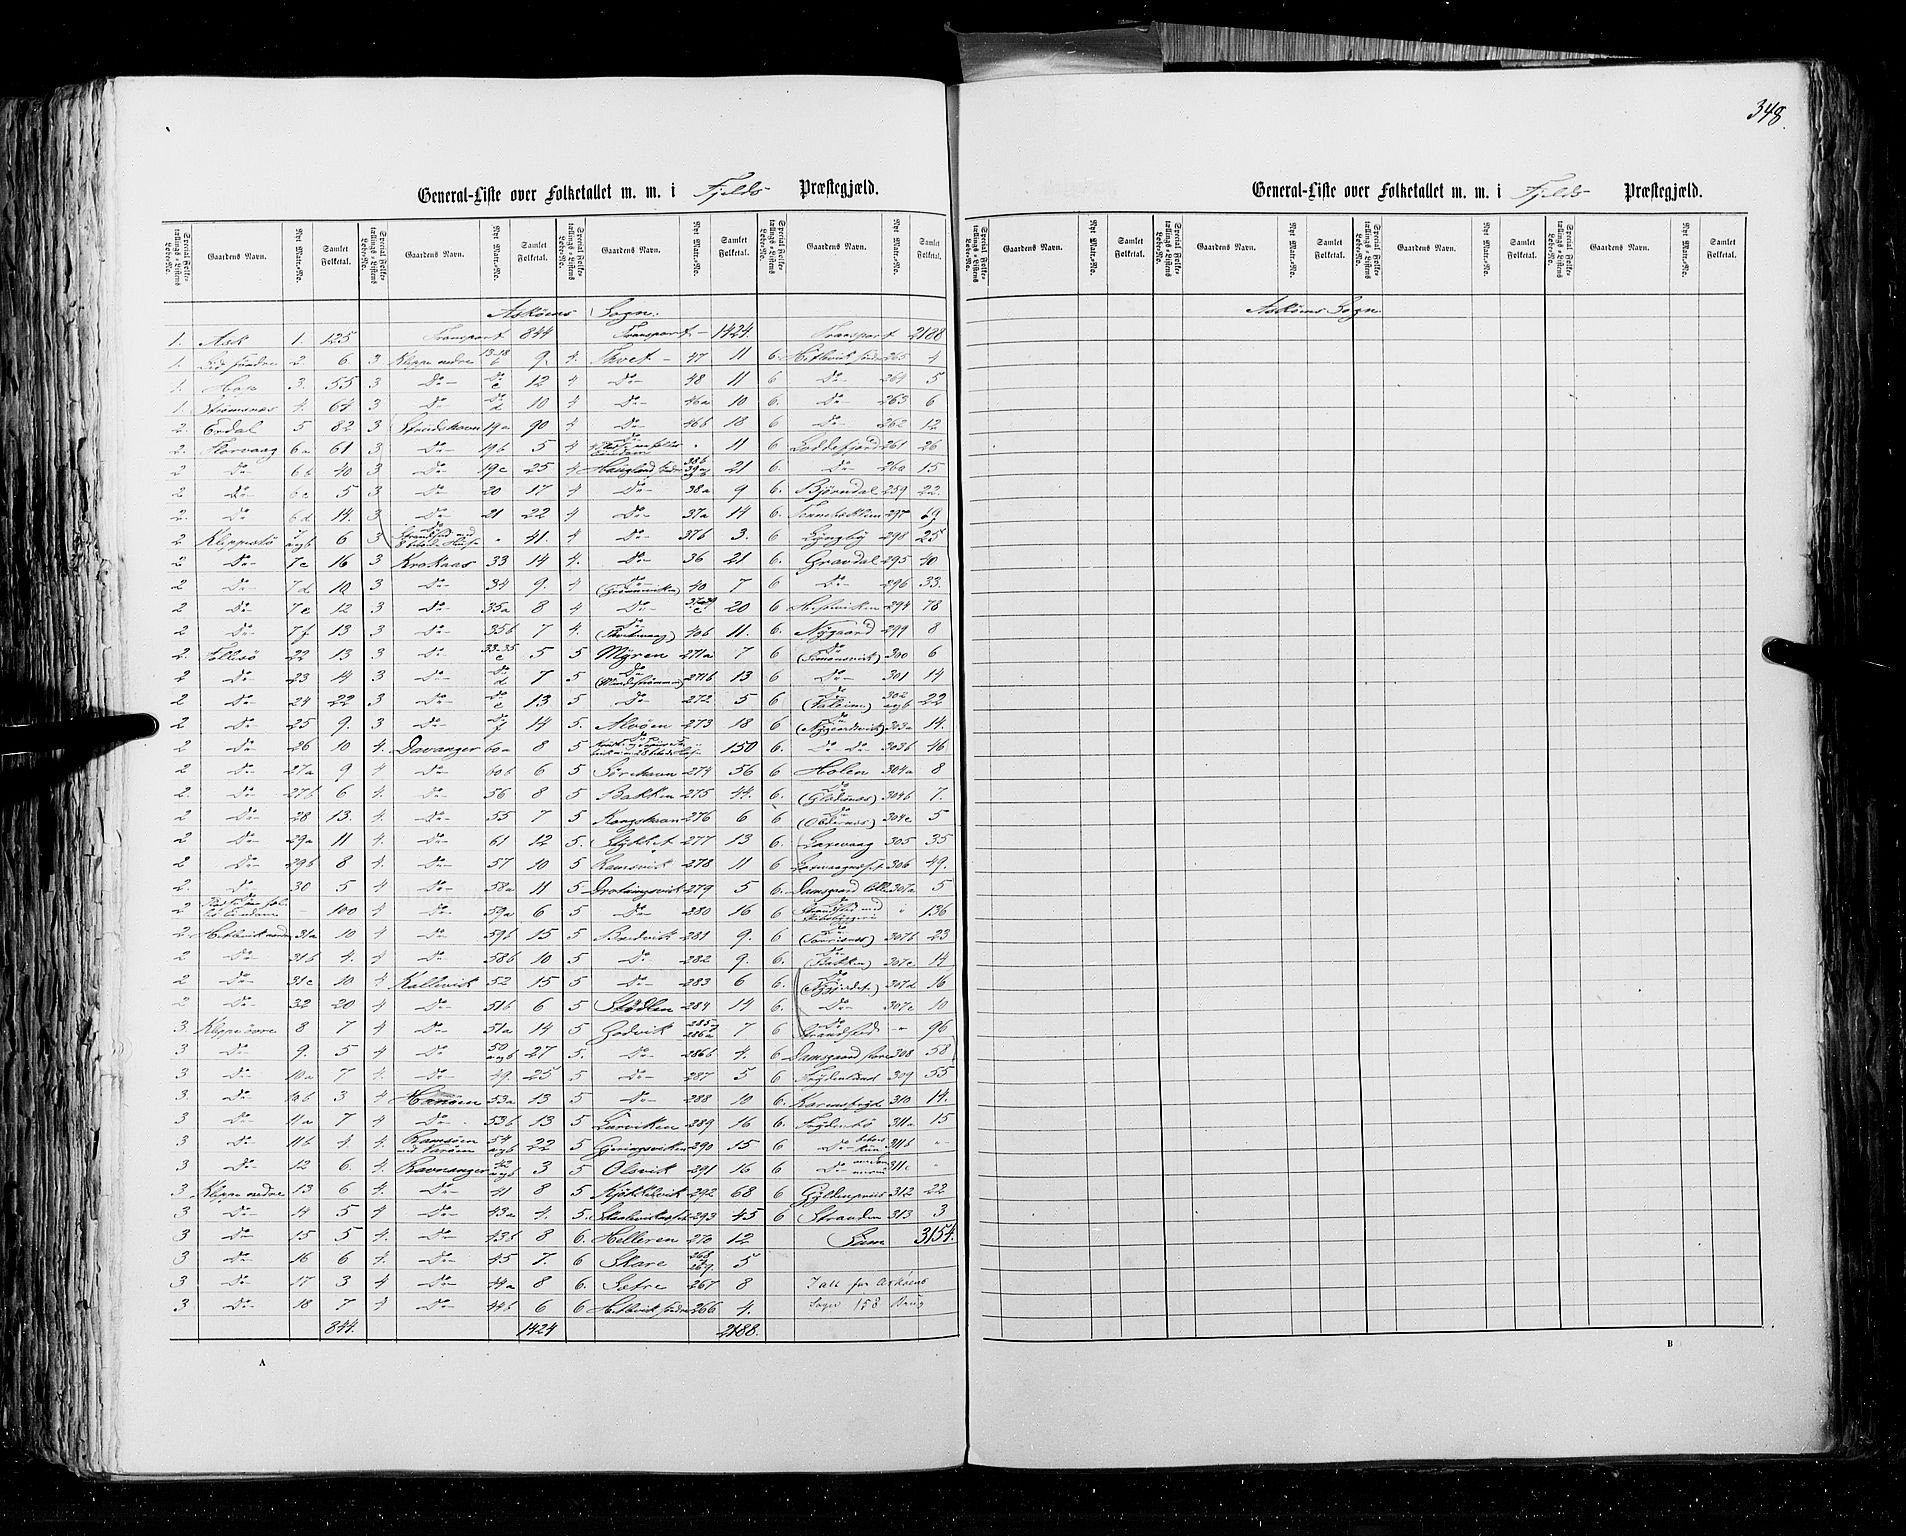 348.
General-Liste over Folketallet m. m. i Fjelds Præstegjæld.
Special Folketællings-Listens Løbe-No. Gaardens Navn. Nyt Matr.-No. Samlet Folketal.
Askøens Sogn.
1. Ask 1. 125
1. 2 6
1. Hop 3. 55
1. Strømsnæs 4. 64
2. Erdal 5 82
2. Florvaag 6a 61
2 Do 6b 40
2 Do 6c 5
2. Do 6d 14.
2 Kleppestø 6
2 Do 7c 16
2 Do 7d 10
2 Do 7e 12
2 Do 7f 13
2. Follesø 22 13
2 Do 23 14
2 Do 24 22
2 Do 25 9.
2 Do 26 10
2 Do 27a 9
2. Do 27b 6
2 Do 28 13.
2 Do 29a 11
2 Do 29b 8
2. Do 30 5
2 100
2. Hetlevik 31a 10
2 Do 31b 4.
2 Do 31c 10
2 Do 32 20
3. Kleppe øvre 8 7
3 Do 9. 5
3 Do 10a 7
3 Do 10b 3
3 Do 11a 7
3 Do 11b 4
3 Do 12 6.
3 Kleppe nedre 13 6
3 Do 14 5
3 Do 15 5
3 Do 16 6
3 Do 17 3
3 Do 18 7
844.
Transport 844
3 Kleppe nedre 13-18 b 9.
3 Do Do c 12
3 Do Do d 10
3 Strudshavn 19a 90
3 Do 19b 5
3 Do 19c 25
3 Do 20 17
3 Do 21 22
3 Do 41.
3 Krokaas 33 14
3 Do 34 9.
3 Do 35a 8
3 Do 35b 7
3 Do 33-35 c 5
3 Do Do d 7
3 Do Do e 13
3 Do Do f 14
4. Davanger 60a 8
4 Do 60b 6
4. Do 56 8
4. Do 55 7
4. Do 61 12
4 Do 57 10
4 Do 58a 11
4 Do 59a 6
4 Do 59b 15
4 Do 58b 10
4 Kollevik 52 15
4 Do 51b 6
4 Do 51a 14
4 Do 50 27
4. Do 49. 25
4 Hanøen 53a 13
4 Do 53b 13
4. Ramsøen 54 22
4. Ravnanger 42 3
4. Do 41 8
4 Do 43a 4.
4. Do 43b 8
4 Do 45 7.
4 Do 44a 8
4 Do 44b 6
1424
Transport 1424
4. Tkvet 47 11
4 Do 48 11
4 Do 46a 10
4 Do 46b 18
4 Do 11
4 Haugland 21
4 Do 38a 9
4 Do 37a 14
4 Do 37b 3.
4. Do 36 21
4 Do 40 7
4 Do 20
4. Do 40b 11.
5 Myren 271a 7
5 Do 271b 13
5 Do 272 5
5. Alvøen 273 18
5 Do 150
5 Sørehavn 274 56
5 Bakken 275 44.
5 276 6
5. Stykket 277 13
5 Ramsvik 278 11
5. Drotningsvik 279 5
5 Do 280 16
5 Bredvik 281 9.
5 Do 282 9.
5 Do 283 6
5 Stødlen 284 14
5 Godvik 285 286a 7
5. Do 286b 4.
5 Do 287 5
5 Do 288 10
5 289 16
5 290 15
5 Olsvik 291 16
5 Kjøkkelvik 292 68
5. 293 45
6. Helleren 270 12
6 Skare 268 269. 5
6. Sætre 267 8
6 Hetlevik søndre 266 4.
2188.
Transport 2188
6. Hetlevik søndre 265 4
6 Do 264 5
6. Do 263 6
6 Do 262 12
6 Loddefjord 261 26
6. Do 260 15
6. Bjørndal 259 22.
6. 297 69
6 Lyngbø 298 25
6. Gravdal 295 40
6 Do 296 33.
6 294 78
6. Nygaard 299 8
6 Do (Simonsvik) 300 6
6 Do 301 14
6 Do 302 22
6 Do (Nygaardsvik) 303a 14.
6. Do Do 303b 46
6 Holen 304a 8
6. Do 304b 7.
6 Do 304c 5
6. Laxevaag 305 35
6 306 49.
6. Damsgaard 307a 5
6 Do 136
6 Do 307b 23
6. Do (Bakken) 307c 14
6. Do 307d 16
6 Do 307e 10
Do Strandsted 96
6 Damsgaard 308 58
6 Frydenlund 309 55
6. 310 14.
6 Frydenbø 311a 15
6 Do 311b
6 Do 311c
6 Gyldenpriis 312 22
6 Stranden 313 3
Sum 3154.
I alt for Askøens
Sogn 158 Brug
A
General-Liste over Folketallet m. m. i Fjelds Præstegjæld.
Special Folketællings-Listens Løbe-No. Gaardens Navn. Nyt Matr.-No. Samlet Folketal.
Askøens Sogn.
B